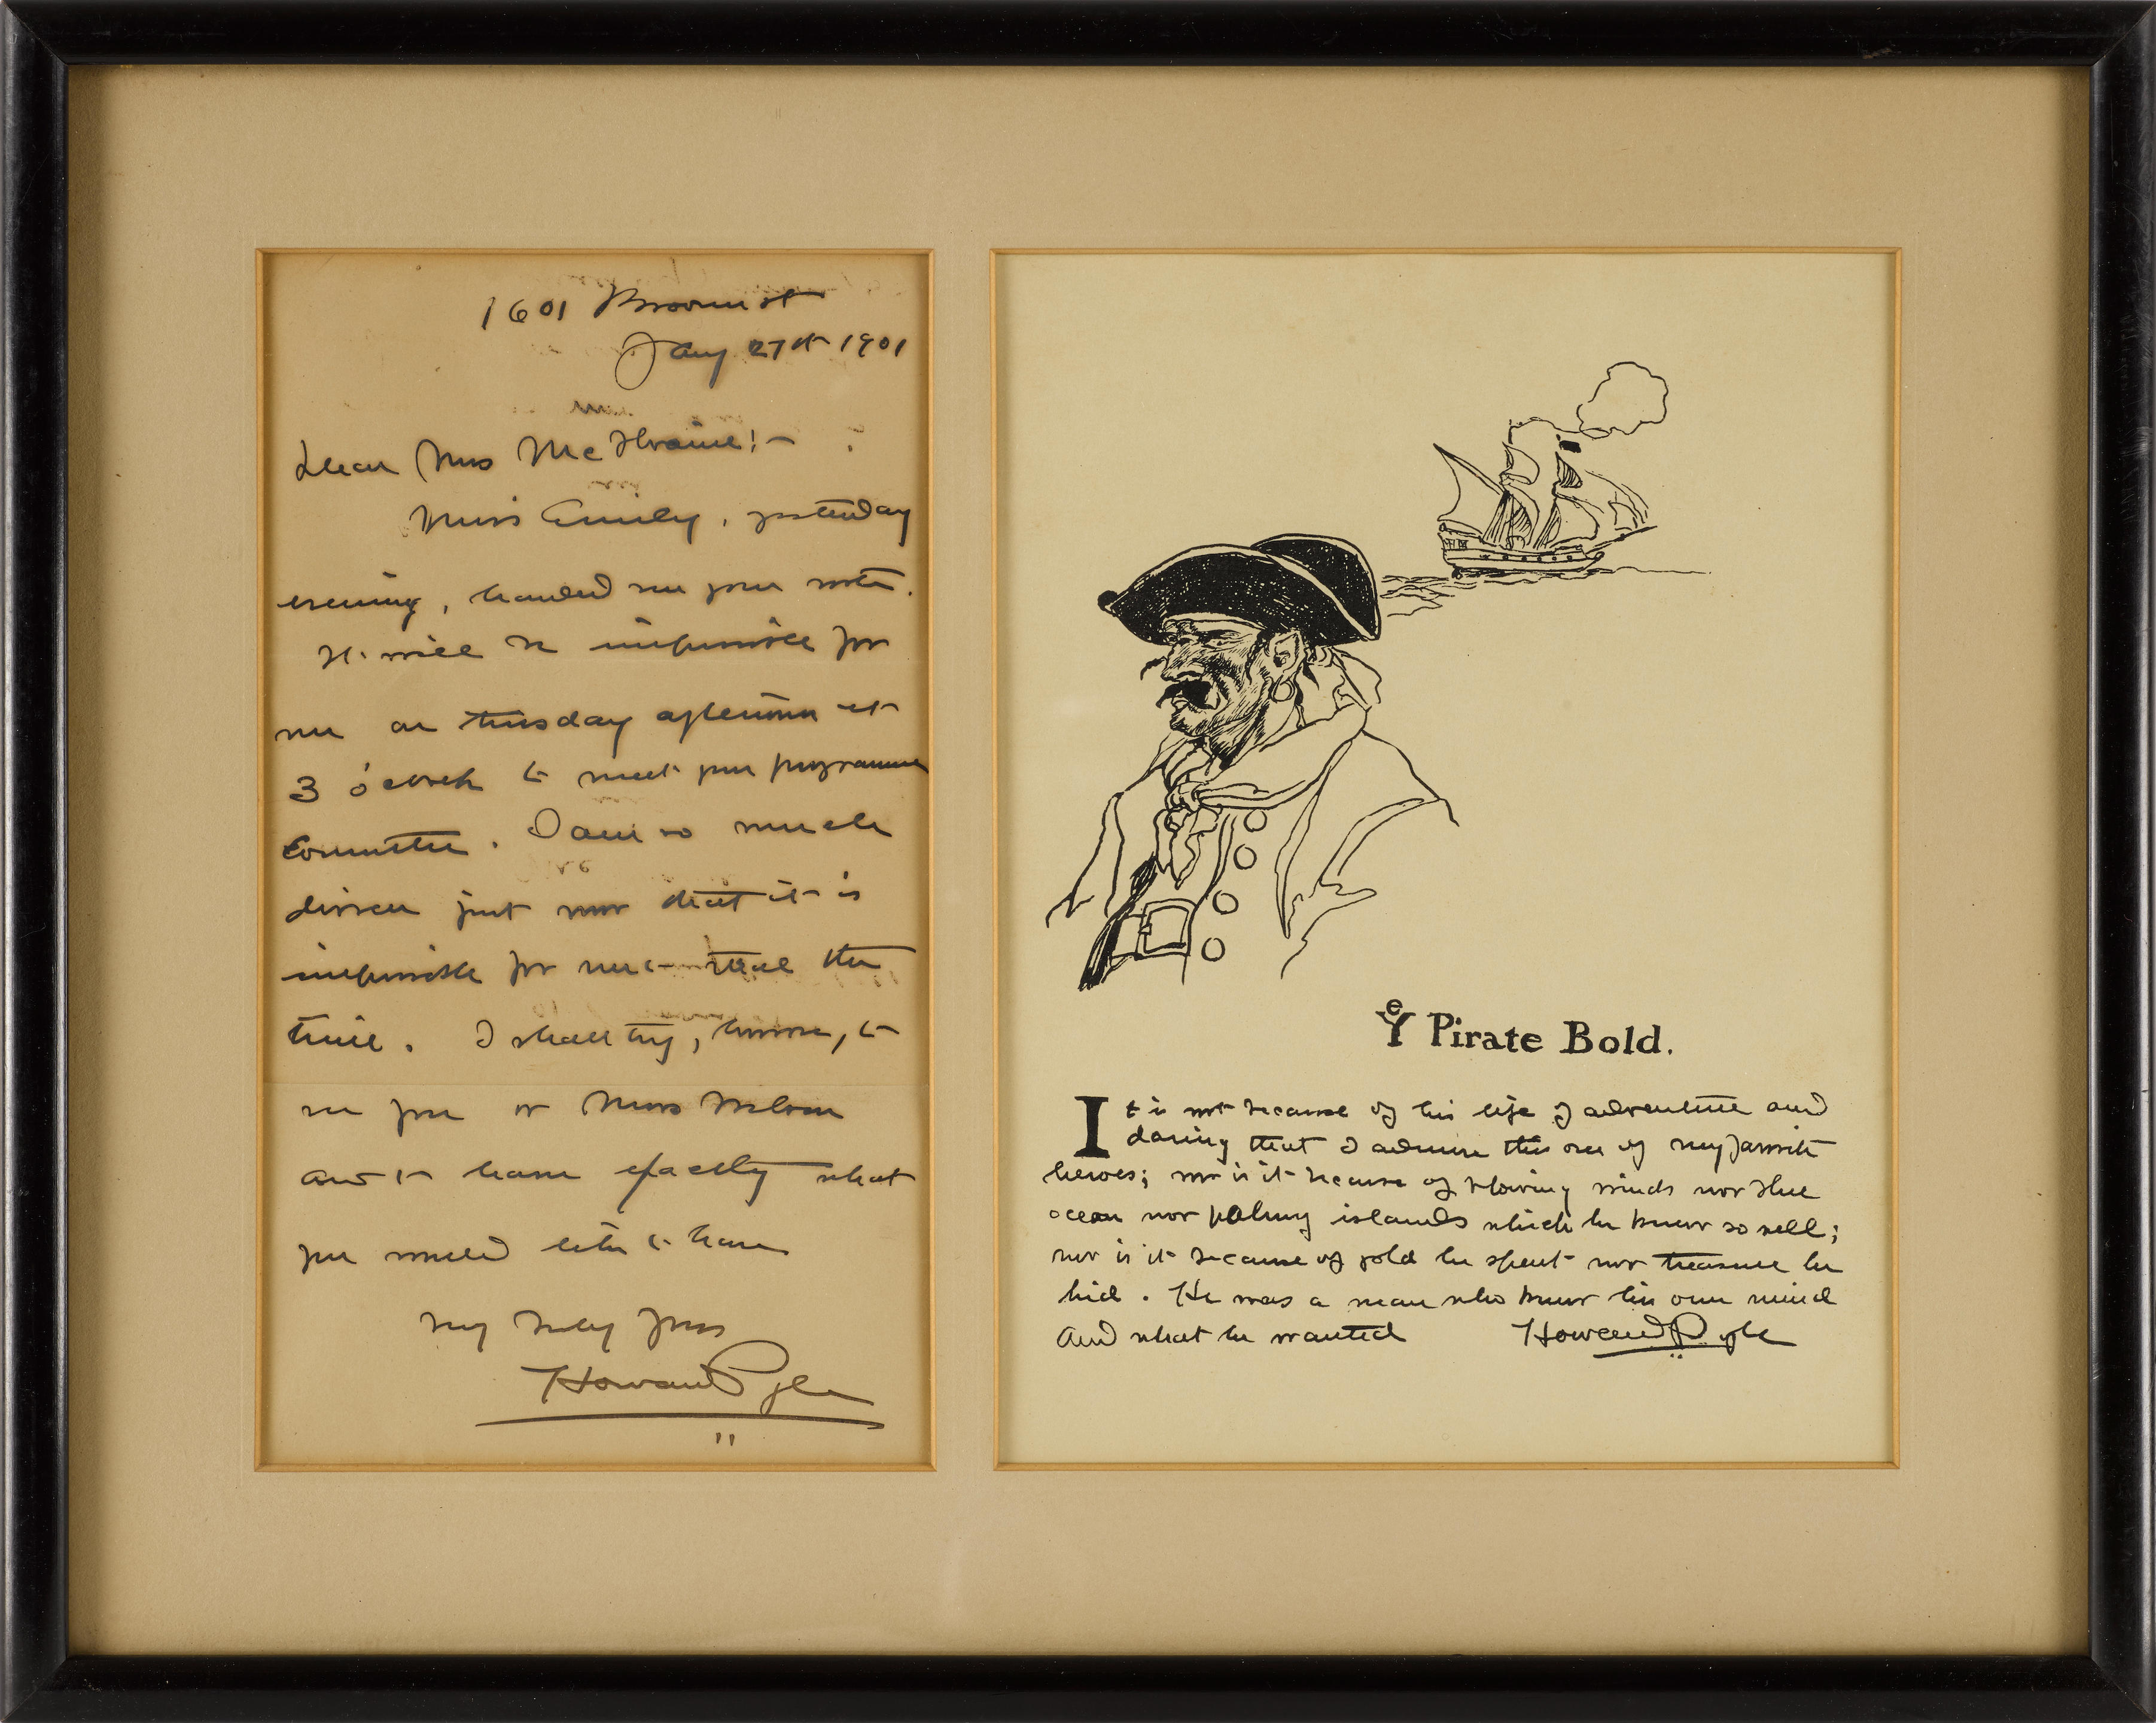 1601 Broom st
Jany 27th 1901
Dear Mrs McIlvaine!-
Miss Emily, yesterday
evening, handed me your note.
It will be impossible for
me on tuesday afternoon at
3 o'clock to meet your programme
Committee. I am so much
driven just now that it is
impossible for me to the
time. I shall try, however, to
see you or Miss
and to learn exactly what
you would like to have
Very truly yours
Howard Pyle
Ye Pirate Bold.
It is not because of his life of adventure and
daring that I admire this one of my favorite
heroes; nor is it because of blowing winds nor blue
ocean nor palmy islands which he knew so well;
nor is it because of gold he spent nor treasure he
hid. He was a man who knew his own mind
and what he wanted Howard Pyle